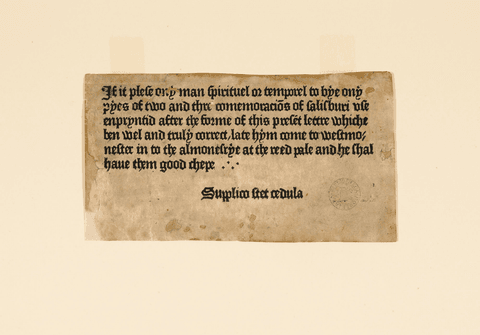 If it plese ony man spirituel or temporel to bye ony
pyes of two and thre comemoraciōs of salisburi vse
enpryntid after the forme of this presēt lettre whiche
ben wel and truly correct, late hym come to westmo-
nester in to the almonesrye at the reed pale and he shal
haue them good chepe .∙.
Supplico stet cedula